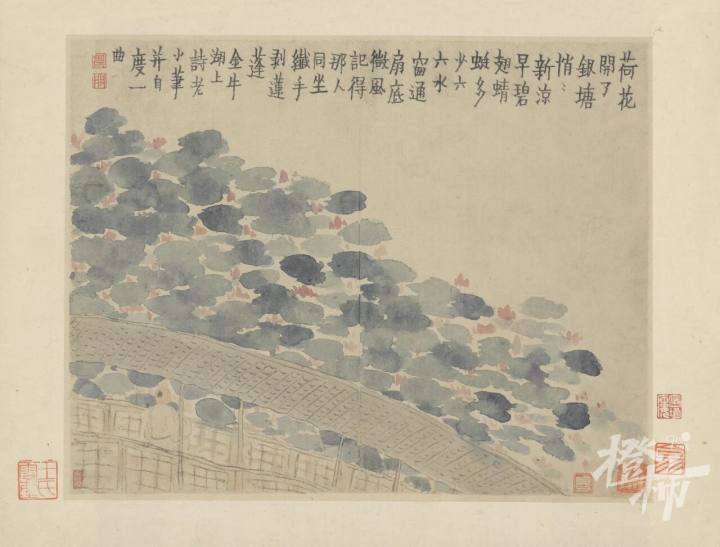 荷花
開了
銀塘
悄〻
新涼
早碧
翅蜻
蜓多
少六
六水
窗通
扇底
微風
記得
那人
同坐
纖手
剥蓮
蓬
金牛
湖上
詩老
小筆
并自
度一
曲
橙柿